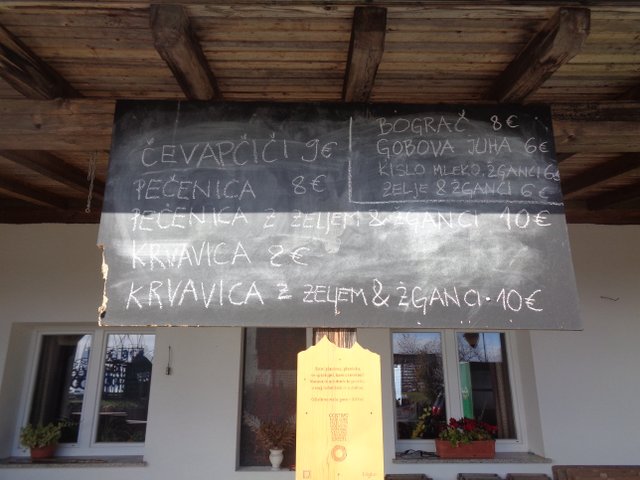 ČEVAPČIČI 9€
PEČENICA 8€
BOGRAČ 8€
GOBOVA JUHA 6€
KISLO MLEKO, ŽGANCI 6€
ZELJE & ŽGANCI 6€
PEČENICA Z ZELJEM & ŽGANCI 10€
KRVAVICA 8€
KRVAVICA Z ZELJEM & ŽGANCI • 10€